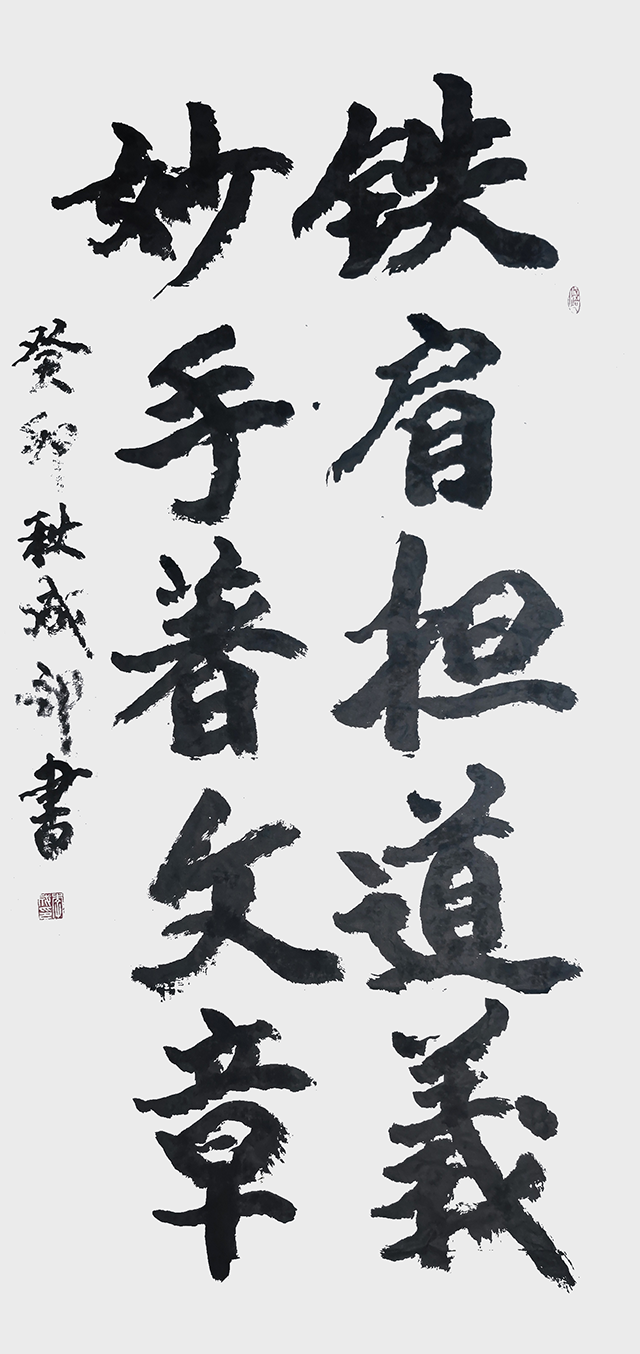 铁肩担道義
妙手著文章
癸卯秋成書